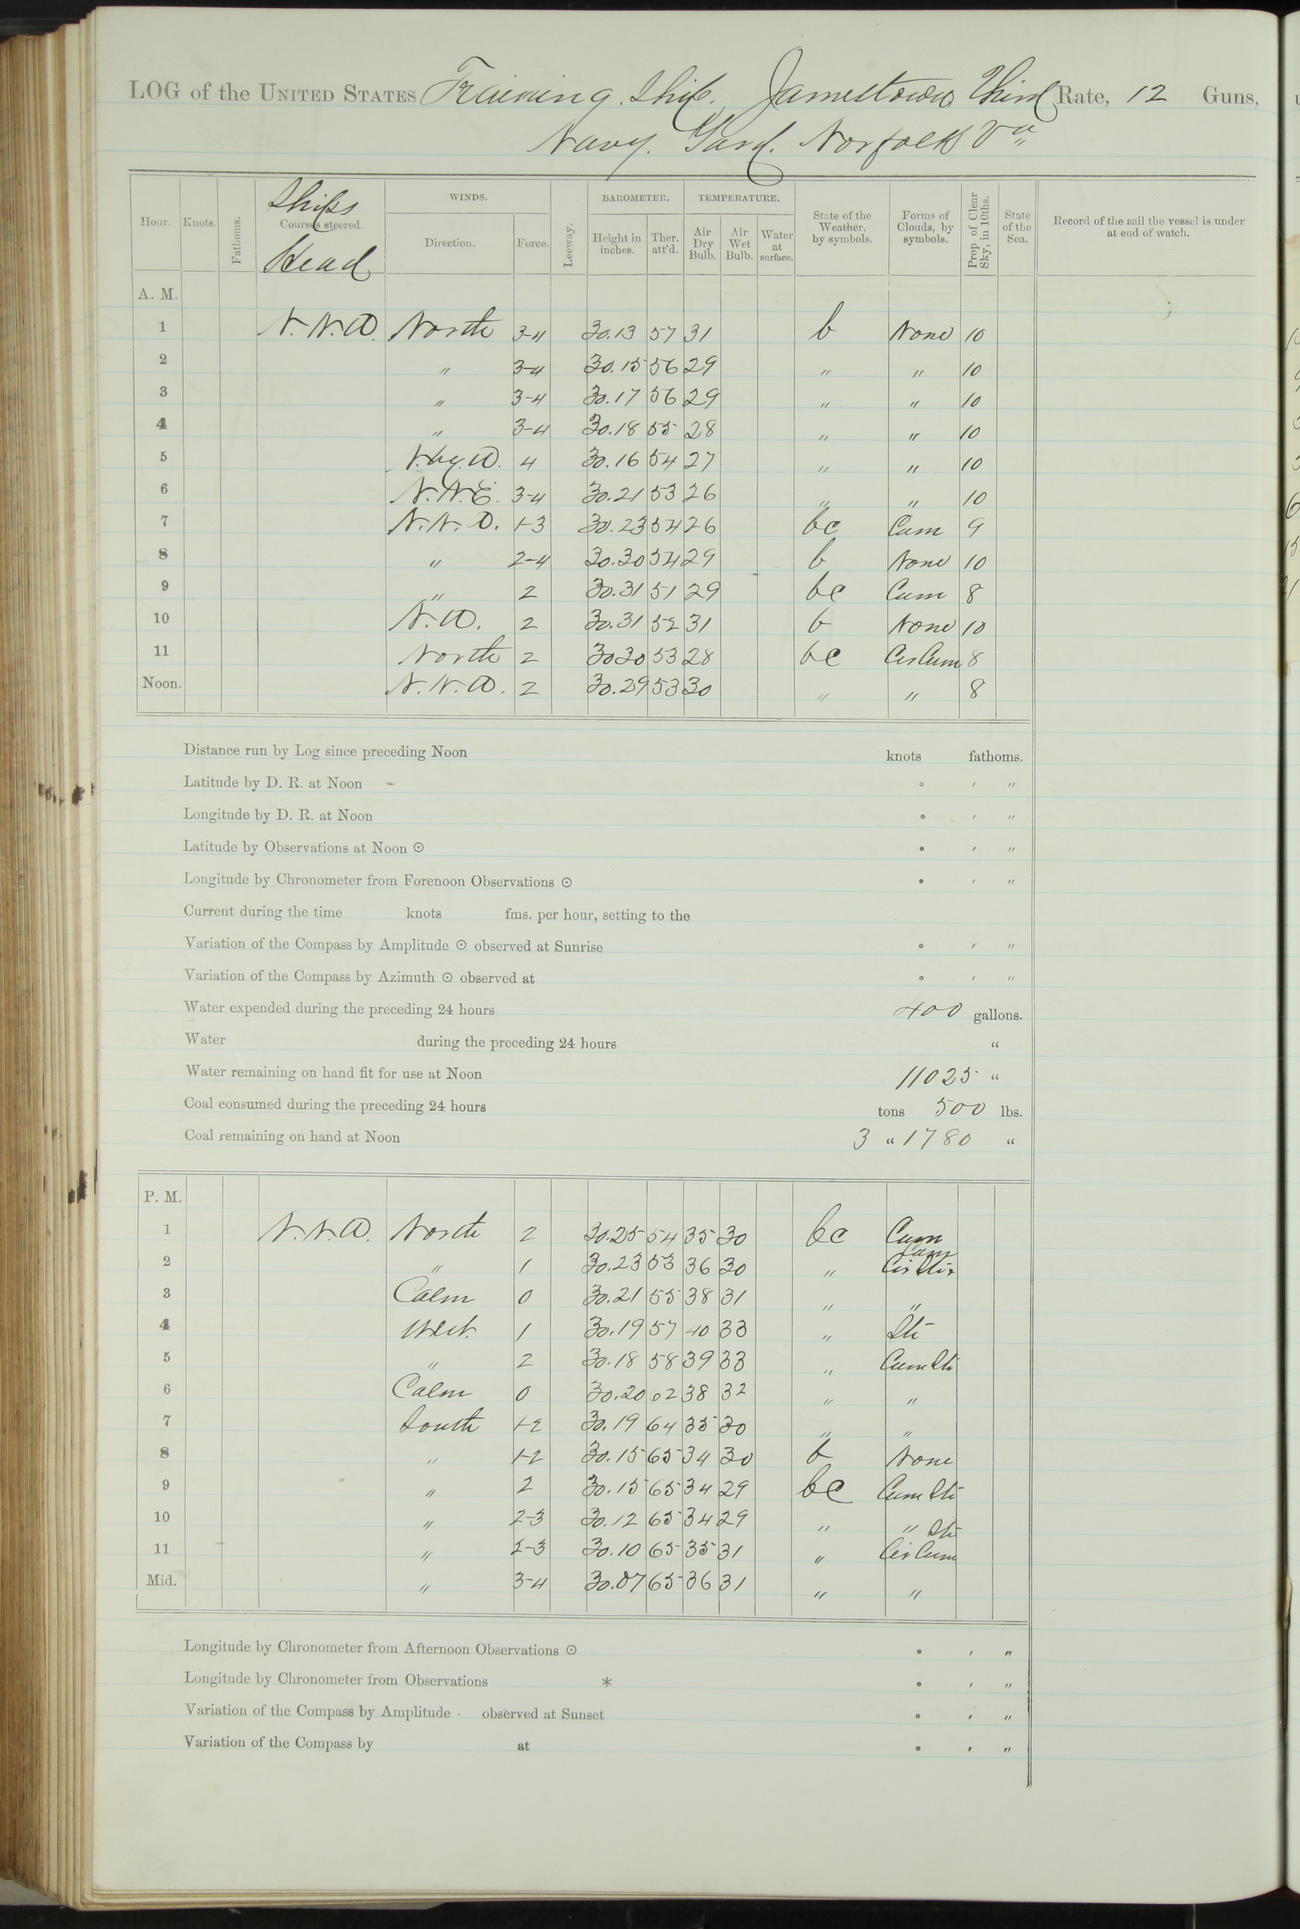 LOG of the UNITED STATES Training Ship. Jamestown Third Rate, 12 Guns,
Navy. Yard. Norfolk Va
Hour. Knots. Fathoms. Ships Courses steered. Head WINDS. Direction. Force. Leeway. BAROMETER. Height in inches. Ther. att'd. TEMPERATURE. Air Dry Bulb. Air Wet Bulb. Water at surface. State of the Weather, by symbols. Forms of Clouds, by symbols. Prop. of Clear Sky, in 10ths. State of the Sea. Record of the sail the vessel is under at end of watch.
A. M.
1 N.N.W. North 3-4 30.13 57 31 b None 10
2 " 3-4 30.15 56 29 " " 10
3 " 3-4 30.17 56 29 " " 10
4 " 3-4 30.18 55 28 " " 10
5 N.by.W. 4 30.16 54 27 " " 10
6 N.N.E. 3-4 30.21 53 26 " " 10
7 N.N.W. 1-3 30.23 54 26 bc Cum 9
8 " 2-4 30.30 54 29 b None 10
9 " 2 30.31 51 29 bc Cum 8
10 N.W. 2 30.31 52 31 b None 10
11 North 2 30 30 53 28 bc Cir Cum 8
Noon. N.N.W. 2 30.29 53 30 " " 8
Distance run by Log since preceding Noon knots fathoms.
Latitude by D. R. at Noon ° ' "
Longitude by D. R. at Noon ° ' "
Latitude by Observations at Noon ☉ ° ' "
Longitude by Chronometer from Forenoon Observations ☉ ° ' "
Current during the time knots fms. per hour, setting to the
Variation of the Compass by Amplitude ☉ observed at Sunrise ° ' "
Variation of the Compass by Azimuth ☉ observed at ° ' "
Water expended during the preceding 24 hours 400 gallons.
Water during the preceding 24 hours "
Water remaining on hand fit for use at Noon 11025 "
Coal consumed during the preceding 24 hours tons 500 lbs.
Coal remaining on hand at Noon 3 " 1780 "
P. M.
1 N.N.W. North 2 30.25 54 35 30 bc Cum
2 " 1 30.23 53 36 30 " Cum Cir Str
3 Calm 0 30.21 55 38 31 " "
4 West 1 30.19 57 40 33 " Str
5 " 2 30.18 58 39 33 " Cum Str
6 Calm 0 30.20 62 38 32 " "
7 South 1-2 30.19 64 35 30 " "
8 " 1-2 30.15 65 34 30 b None
9 " 2 30.15 65 34 29 bc Cum Str
10 " 2-3 30.12 65 34 29 " "
11 " 2-3 30.10 65 35 31 " Str Cir Cum
Mid. " 3-4 30.07 65 36 31 " "
Longitude by Chronometer from Afternoon Observations ☉ ° ' "
Longitude by Chronometer from Observations * ° ' "
Variation of the Compass by Amplitude observed at Sunset ° ' "
Variation of the Compass by at ° ' "